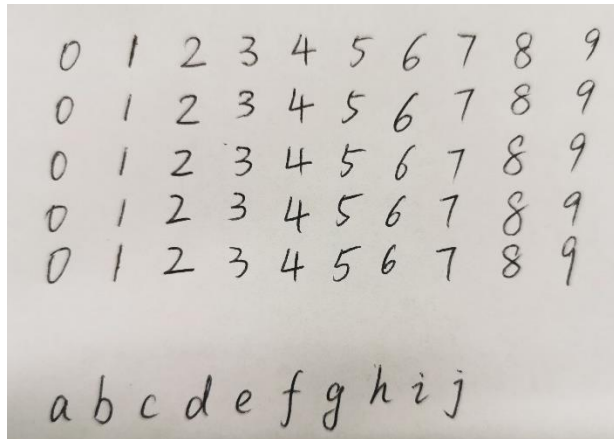 0 1 2 3 4 5 6 7 8 9
0 1 2 3 4 5 6 7 8 9
0 1 2 3 4 5 6 7 8 9
0 1 2 3 4 5 6 7 8 9
0 1 2 3 4 5 6 7 8 9
a b c d e f g h i j